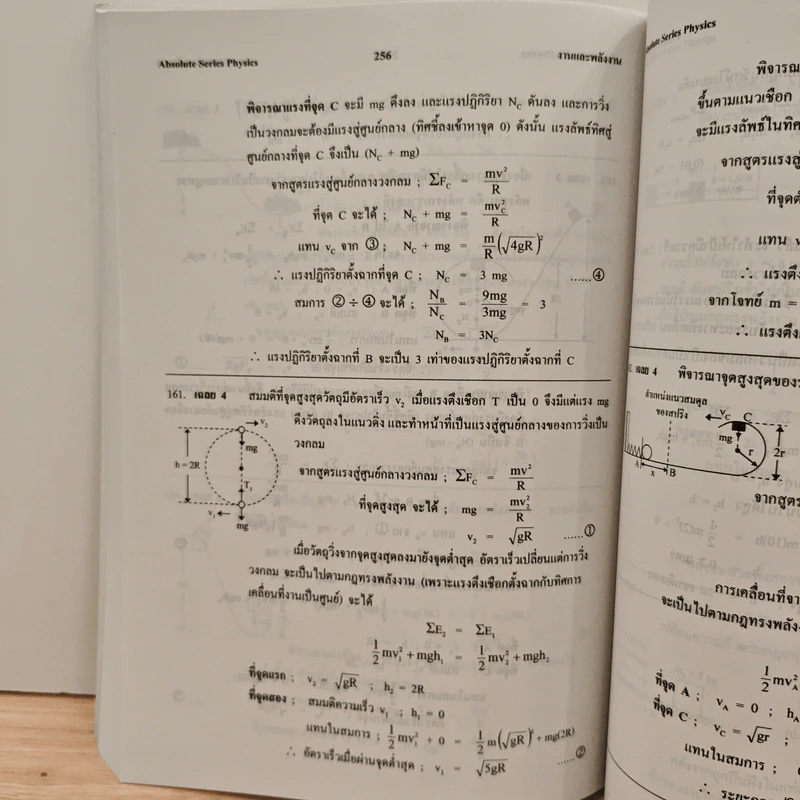 Absolute Series Physics 256 งานและพลังงาน
พิจารณาแรงที่จุด C จะมี mg ดึงลง และแรงปฏิกิริยา N_C ดันลง และการวิ่ง
เป็นวงกลมจะต้องมีแรงสู่ศูนย์กลาง (ทิศชี้ลงเข้าหาจุด 0) ดังนั้น แรงลัพธ์ทิศสู่
ศูนย์กลางที่จุด C จึงเป็น (N_C + mg)
จากสูตรแรงสู่ศูนย์กลางวงกลม ; ΣF_C = mv²/R
ที่จุด C จะได้ ; N_C + mg = mv_C²/R
แทน v_C จาก ③ ; N_C + mg = m/R (√4gR)²
∴ แรงปฏิกิริยาตั้งฉากที่จุด C ; N_C = 3 mg ......④
สมการ ② ÷ ④ จะได้ ; N_B/N_C = 9mg/3mg = 3
N_B = 3N_C
∴ แรงปฏิกิริยาตั้งฉากที่ B จะเป็น 3 เท่าของแรงปฏิกิริยาตั้งฉากที่ C
161. เฉลย 4 สมมติที่จุดสูงสุดวัตถุมีอัตราเร็ว v₂ เมื่อแรงตึงเชือก T เป็น 0 จึงมีแต่แรง mg
ดึงวัตถุลงในแนวดิ่ง และทำหน้าที่เป็นแรงสู่ศูนย์กลางของการวิ่งเป็น
วงกลม
v₂
mg
h = 2R
T₁
v₁
mg
จากสูตรแรงสู่ศูนย์กลางวงกลม ; ΣF_C = mv²/R
ที่จุดสูงสุด จะได้ ; mg = mv₂²/R
v₂ = √gR ......①
เมื่อวัตถุวิ่งจากจุดสูงสุดลงมายังจุดต่ำสุด อัตราเร็วเปลี่ยนแต่การวิ่ง
วงกลม จะเป็นไปตามกฎทรงพลังงาน (เพราะแรงตึงเชือกตั้งฉากกับทิศการ
เคลื่อนที่งานเป็นศูนย์) จะได้
ΣE₂ = ΣE₁
½mv₁² + mgh₁ = ½mv₂² + mgh₂
ที่จุดแรก ; v₂ = √gR ; h₂ = 2R
ที่จุดสอง ; สมมติความเร็ว v₁ ; h₁ = 0
แทนในสมการ ; ½mv₁² + 0 = ½m(√gR)² + mg(2R)
∴ อัตราเร็วเมื่อผ่านจุดต่ำสุด ; v₁ = √5gR ......②
Series Physics
ขึ้นตามแนวเชือก
จะมีแรงลัพธ์ในทิศ
จากสูตรแรงสู่
แทน
จากโจทย์ m =
เฉลย 4 พิจารณาจุดสูงสุดของ
ตำแหน่งแนวสมดุล
ของสปริง
v_C C
mg
r
2r
A x B
จากสูตร
การเคลื่อนที่จา
จะเป็นไปตามกฎทรงพลัง
½mv_A²
ที่จุด A ; v_A = 0 ; h_A
ที่จุด C ; v_C = √gr ;
แทนในสมการ ;